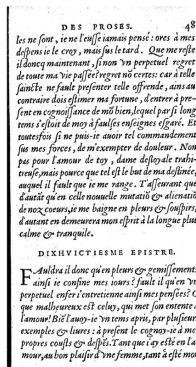 DES PROSES. 48
les ne font, ie ne l'eusse iamais pensé: ores à mes
despens ie le croy, mais sus le tard. Que me reste
il doncq maintenant, sinon vn perpetuel regret
de toute ma vie passée? regret nō certes: car à telle
saincte ne fault presenter telle offrende, ains au
contraire dois estimer ma fortune, d'entrer à pre-
sent en cognoissance de mō bien, lequel par si long
tems s'estoit de moy à faulses enseignes esgaré. Et
toutesfois si ne puis-ie auoir tel commandement
sus mes forces, de m'exempter de douleur. Non
pas pour l'amour de toy, dame desloyale trahi-
tresse, mais pource que tel est le but de ma destinée,
auquel il fault que ie me range. T'asseurant que
d'autāt qu'en celle nouuelle mutatiō & alienatiō
de noz coeurs, ie me baigne en pleurs & souspirs,
d'autant en demeurera mon esprit à la longue plus
calme & tranquile.
DIXHVICTIESME EPISTRE.
FAuldra il donc qu'en pleurs & gemissements
ainsi ie confine mes iours? fault il qu'en vn
perpetuel enfer i'entretienne ainsi mes pensées? O
que malheureux est celuy, qui met son entente à
l'amour! Biē l'auoy-ie vn tems apris, par plusieurs
exemples & liures: à present le cognoy-ie à mes
propres cousts & despēs. Tant que i'ay esté en l'a
mour, au bon plaisir d'vne femme, tant à esté mon